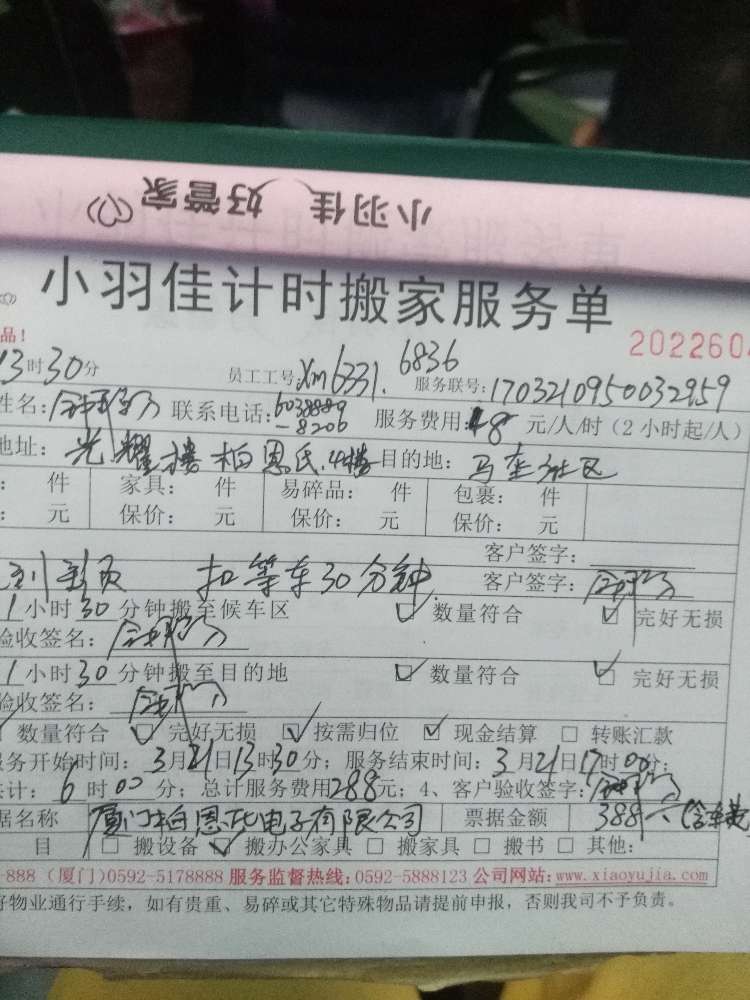 小羽佳 好管家
小羽佳计时搬家服务单
品！
2022604
13时30分 员工工号:Xm6331. 6836 服务联号:1703210950032959
姓名: 联系电话:6038889-8206 服务费用:48元/人/时（2小时起/人）
地址：光耀楼柏恩氏.4楼 目的地：马垄社区
： 件 家具： 件 易碎品： 件 包裹： 件
： 元 保价： 元 保价： 元 保价： 元
客户签字：
扣等车30分钟. 客户签字：
1小时30分钟搬至候车区 ☑ 数量符合 ☑ 完好无损
验收签名：
1小时30分钟搬至目的地 ☑ 数量符合 ☑ 完好无损
验收签名：
数量符合 ☑ 完好无损 ☑ 按需归位 ☑ 现金结算 □ 转账汇款
服务开始时间：3月21日13时30分；服务结束时间：3月21日17时00分；
共计：6时00分；总计服务费用288元；4、客户验收签字：
据名称 厦门柏恩氏电子有限公司 票据金额 388 (含车费
目 □ 搬设备 ☑ 搬办公家具 □ 搬家具 □ 搬书 □ 其他：
-888（厦门）0592-5178888 服务监督热线：0592-5888123 公司网站：www.xiaoyujia.com
好物业通行手续，如有贵重、易碎或其它特殊物品请提前申报，否则我司不予负责。